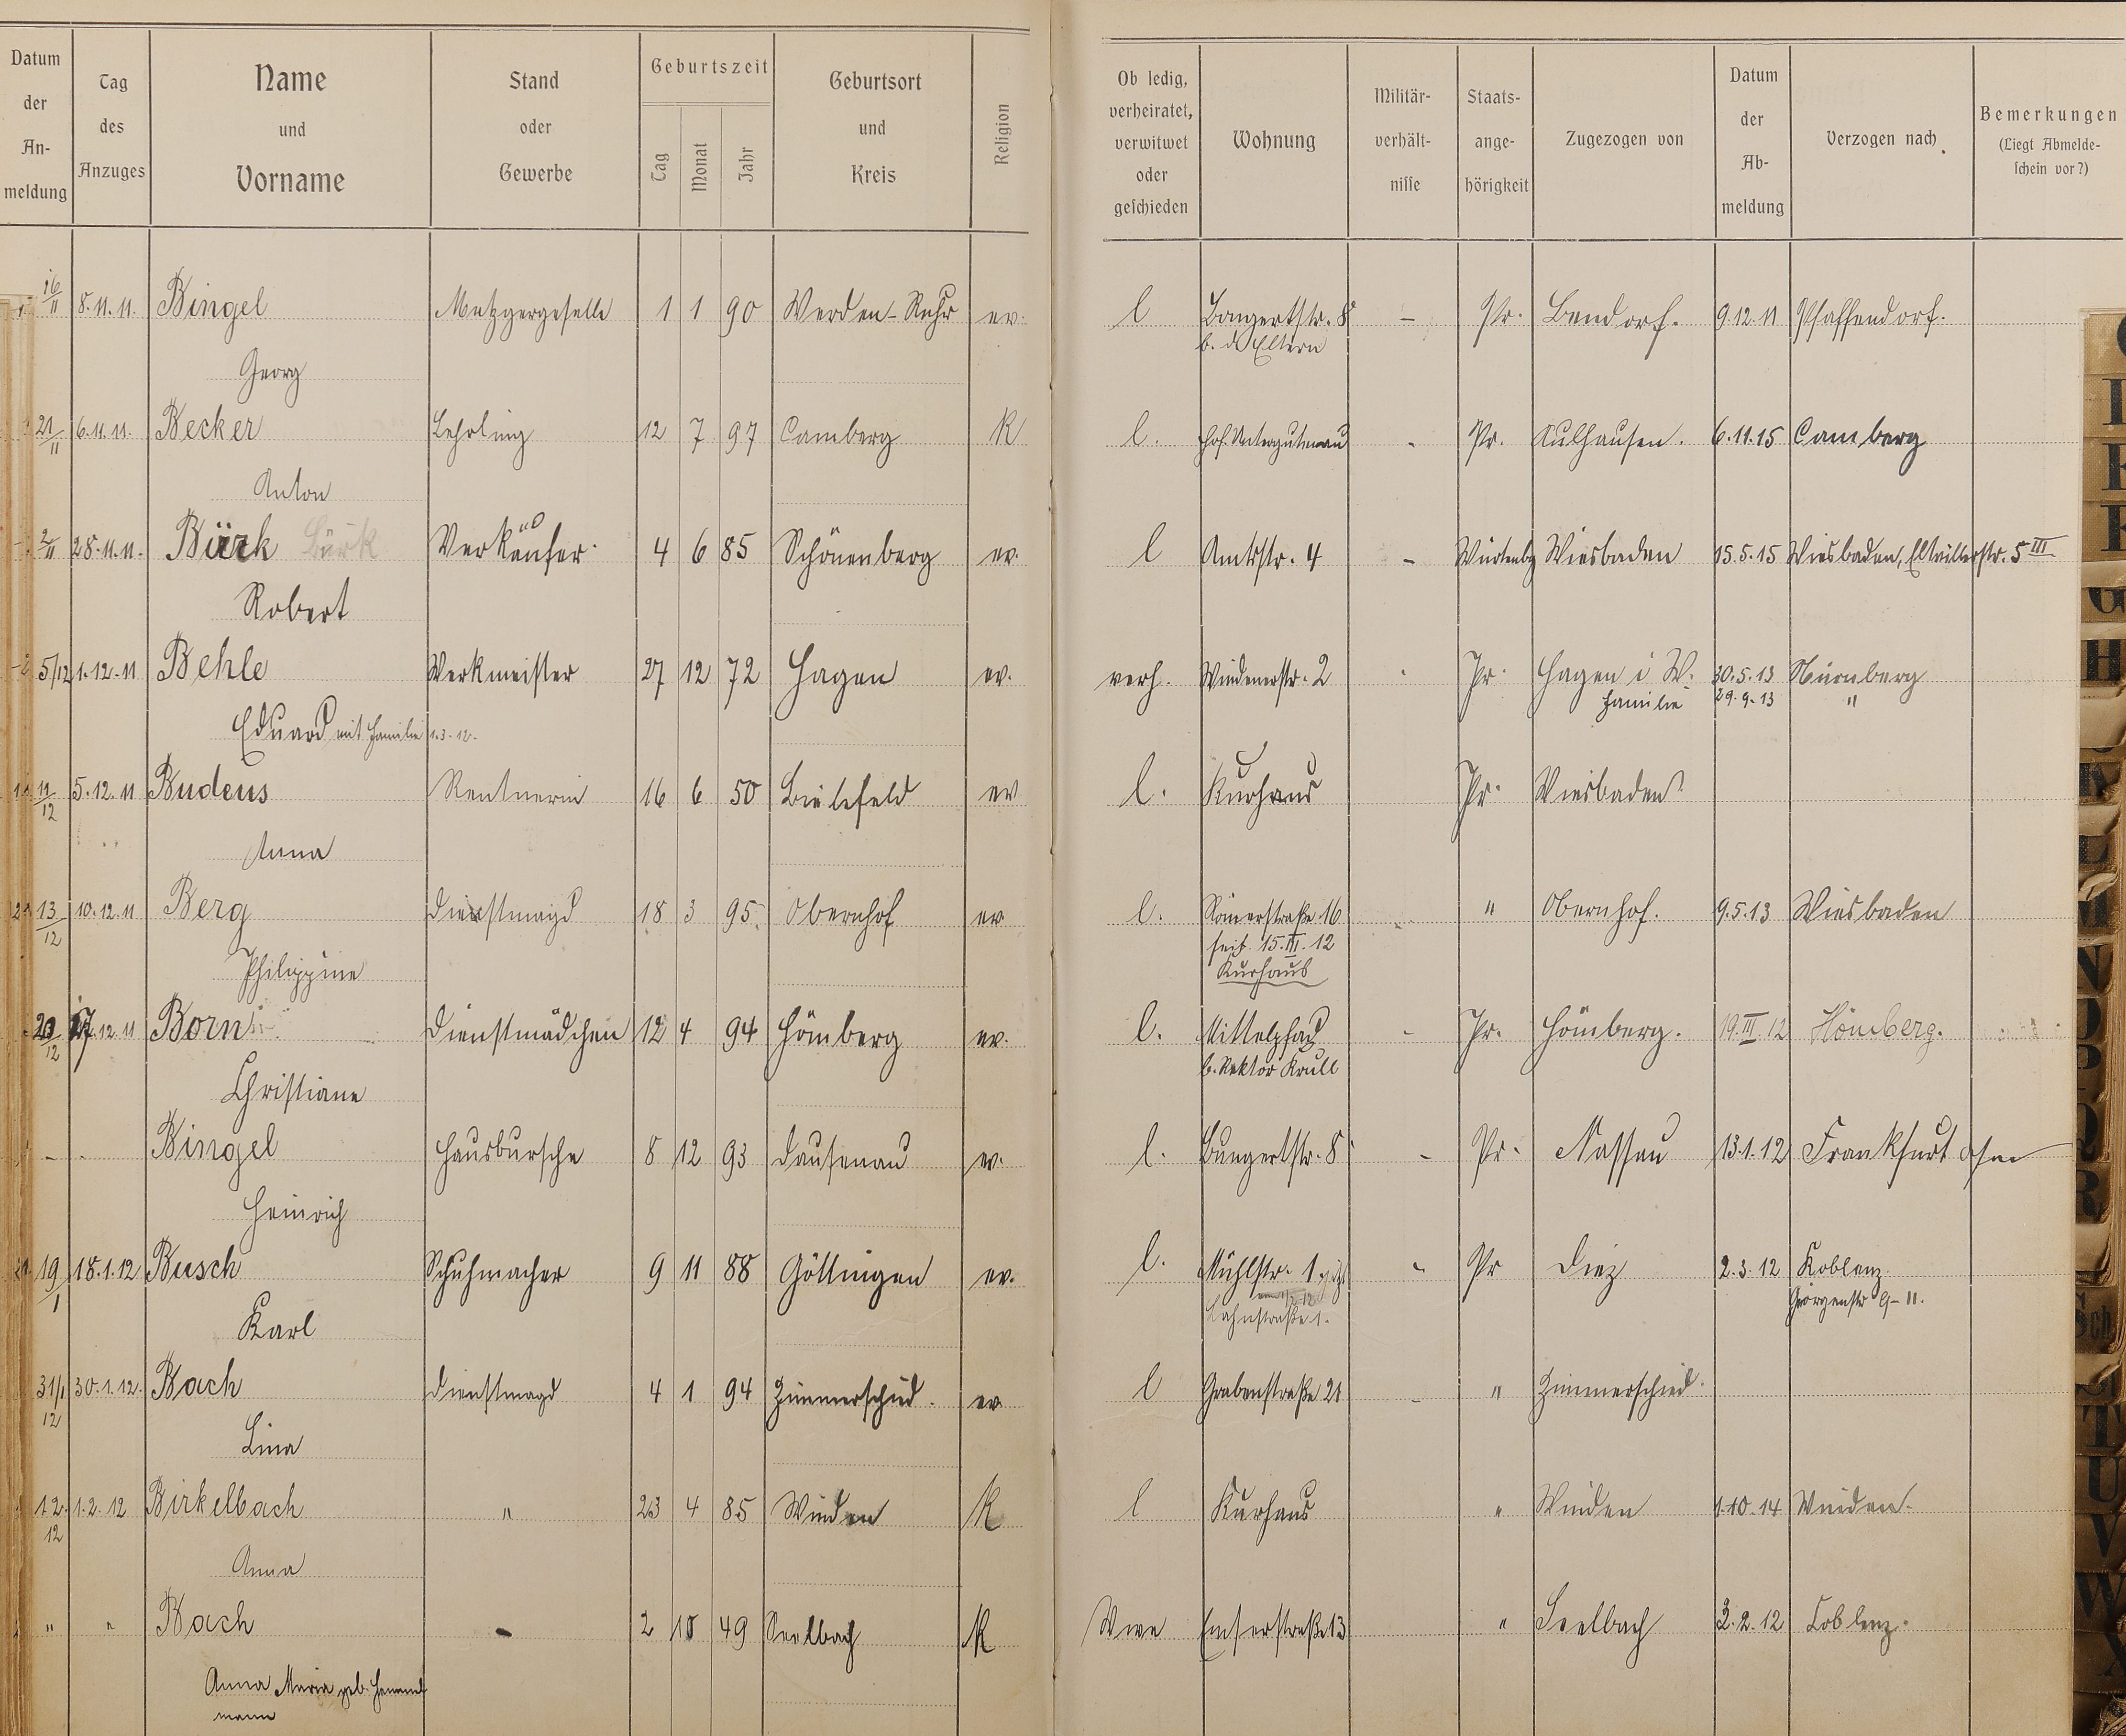 Datum der Anmeldung
Tag des Anzuges
Name und Vorname
Stand oder Gewerbe
Geburtszeit
Tag Monat Jahr
Geburtsort und Kreis
Religion
Ob ledig, verheiratet, verwitwet oder geschieden
Wohnung
Militärverhältnisse
Staatsangehörigkeit
Zugezogen von
Datum der Abmeldung
Verzogen nach
Bemerkungen
(Liegt Abmeldeschein vor?)
16/11 8.11.11. Bingel Metzgergeselle 1 1 90 Werden-Ruhr ev. l Bangertstr. 8 - Pr. Bendorf. 9.12.11 Pfaffendorf.
b. d. Eltern
Georg
21/11 6.11.11. Becker Lehrling 12 7 97 Camberg K l. Hof. Untergutenau - Pr. Aulhausen. 6.11.15 Camberg
Anton
2/11 28.11.11. Bürk Bürk Verkäufer 4 6 85 Schönenberg ev l Amtsstr. 4 - Würtenbg Wiesbaden 15.5.15 Wiesbaden, Eltvillerstr. 5 III
Robert
5/12 1.12.11 Behle Werkmeister 27 12 72 Hagen ev. verh. Windenerstr. 2 Pr. Hagen i W. 30.5.13 Nürnberg
Familie 29.9.13 "
Eduard mit Familie 1.3.12.
11/12 5.12.11 Budeus Rentnerin 16 6 50 Bielefeld ev l. Kurhaus Pr. Wiesbaden
Anna
13/12 10.12.11 Berg Dienstmagd 18 3 95 Obernhof ev l. Römerstraße 16 - " Obernhof. 9.5.13 Wiesbaden
seit 15.III.12
Kurhaus
Philippine
20/12 17.12.11 Born Dienstmädchen 12 4 94 Hömberg ev. l. Mittelpfad - Pr. Hömberg. 19.III.12 Hömberg.
b. Rektor Krull
Christiane
- - Bingel Hausbursche 8 12 93 Dausenau ev. l. Bungertstr. 8 - Pr. Nassau 13.1.12 Frankfurt
Heinrich
19/1 18.1.12 Busch Schuhmacher 9 11 88 Göttingen ev. l. Mühlstr. 1 " Pr Diez 2.3.12 Koblenz
Lahnstraße 1. Görgenstr 9-11.
Karl
31/1 12 30.1.12. Bach Dienstmagd 4 1 94 Zimmerschied. ev l Grabenstraße 21 - " Zimmerschied.
Lina
1.2. 12 1.2.12 Birkelbach " 23 4 85 Winden K l Kurhaus " Winden 1.10.14 Winden.
Anna
" " Bach - 2 10 49 Seelbach K Wwe Emserstraße 13 " Seelbach 3.2.12 Coblenz.
Anna Maria geb. Hemmel
mann